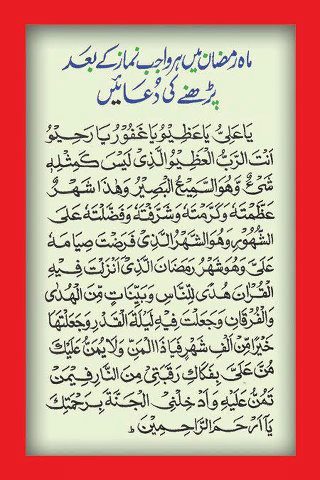 ماہ رمضان میں ہر واجب نماز کے بعد
پڑھنے کی دُعائیں
يَا عَلِيُّ يَا عَظِيْمُ يَا غَفُوْرُ يَا رَحِيْمُ
اَنْتَ الرَّبُّ الْعَظِيْمُ الَّذِيْ لَيْسَ كَمِثْلِهٖ
شَيْءٌ وَهُوَ السَّمِيْعُ الْبَصِيْرُ وَهٰذَا شَهْرٌ
عَظَّمْتَهٗ وَكَرَّمْتَهٗ وَشَرَّفْتَهٗ وَفَضَّلْتَهٗ عَلَى
الشُّهُوْرِ وَهُوَ الشَّهْرُ الَّذِيْ فَرَضْتَ صِيَامَهٗ
عَلَيَّ وَهُوَ شَهْرُ رَمَضَانَ الَّذِيْ اَنْزَلْتَ فِيْهِ
الْقُرْاٰنَ هُدًى لِلنَّاسِ وَبَيِّنَاتٍ مِّنَ الْهُدٰى
وَالْفُرْقَانِ وَجَعَلْتَ فِيْهِ لَيْلَةَ الْقَدْرِ وَجَعَلْتَهَا
خَيْرًا مِّنْ اَلْفِ شَهْرٍ فَيَا ذَا الْمَنِّ وَلَا يُمَنُّ عَلَيْكَ
مُنَّ عَلَيَّ بِفَكَاكِ رَقَبَتِيْ مِنَ النَّارِ فِيْمَنْ
تَمُنُّ عَلَيْهِ وَاَدْخِلْنِي الْجَنَّةَ بِرَحْمَتِكَ
يَا اَرْحَمَ الرَّاحِمِيْنَ ؕ